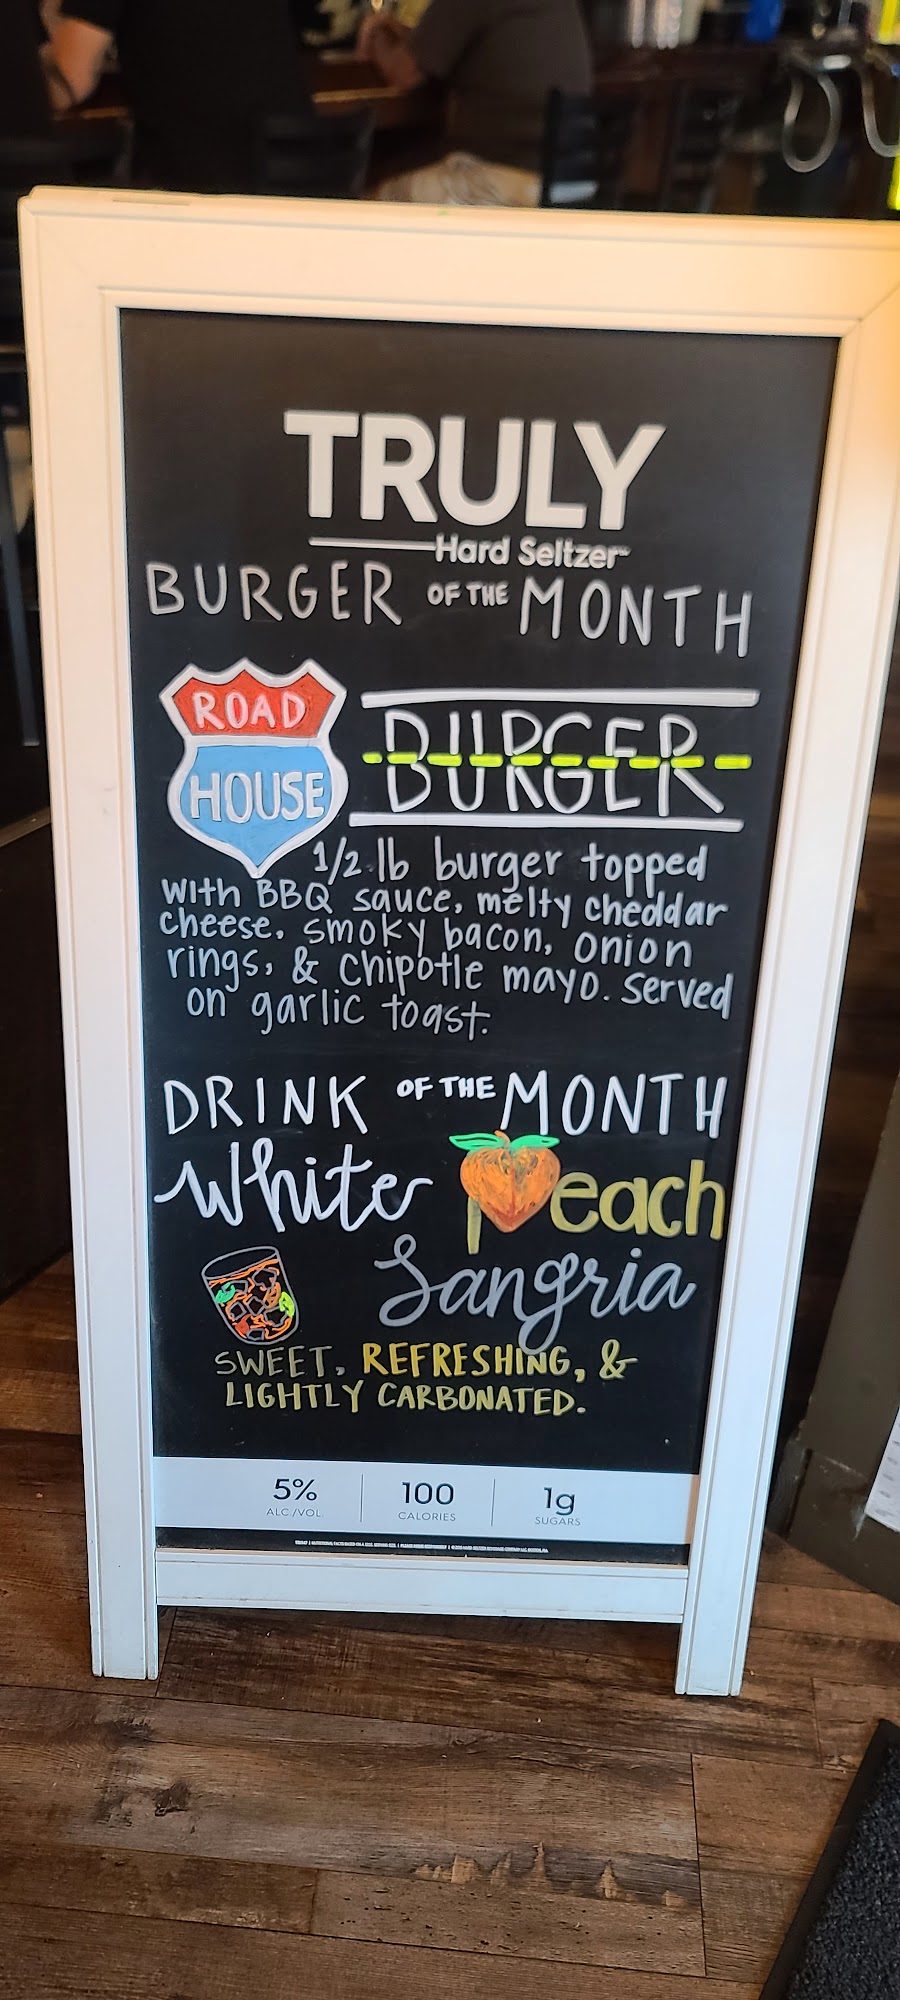 TRULY
Hard Seltzer™
BURGER OF THE MONTH
ROAD
HOUSE
BURGER
1/2 lb burger topped
with BBQ sauce, melty cheddar
cheese, smoky bacon, onion
rings, & chipotle mayo. Served
on garlic toast.
DRINK OF THE MONTH
White Peach
Sangria
SWEET, REFRESHING, &
LIGHTLY CARBONATED.
5% 100 1g
ALC/VOL CALORIES SUGARS